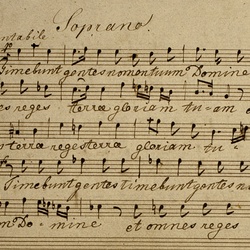 Soprano.
ntabile
Timebunt gentes nomen tuum Domine
es reges terrae gloriam tu=am e
terrae reges terrae gloriam tu
Timebunt gentes timebunt gentes n
m Do = mine et omnes reges